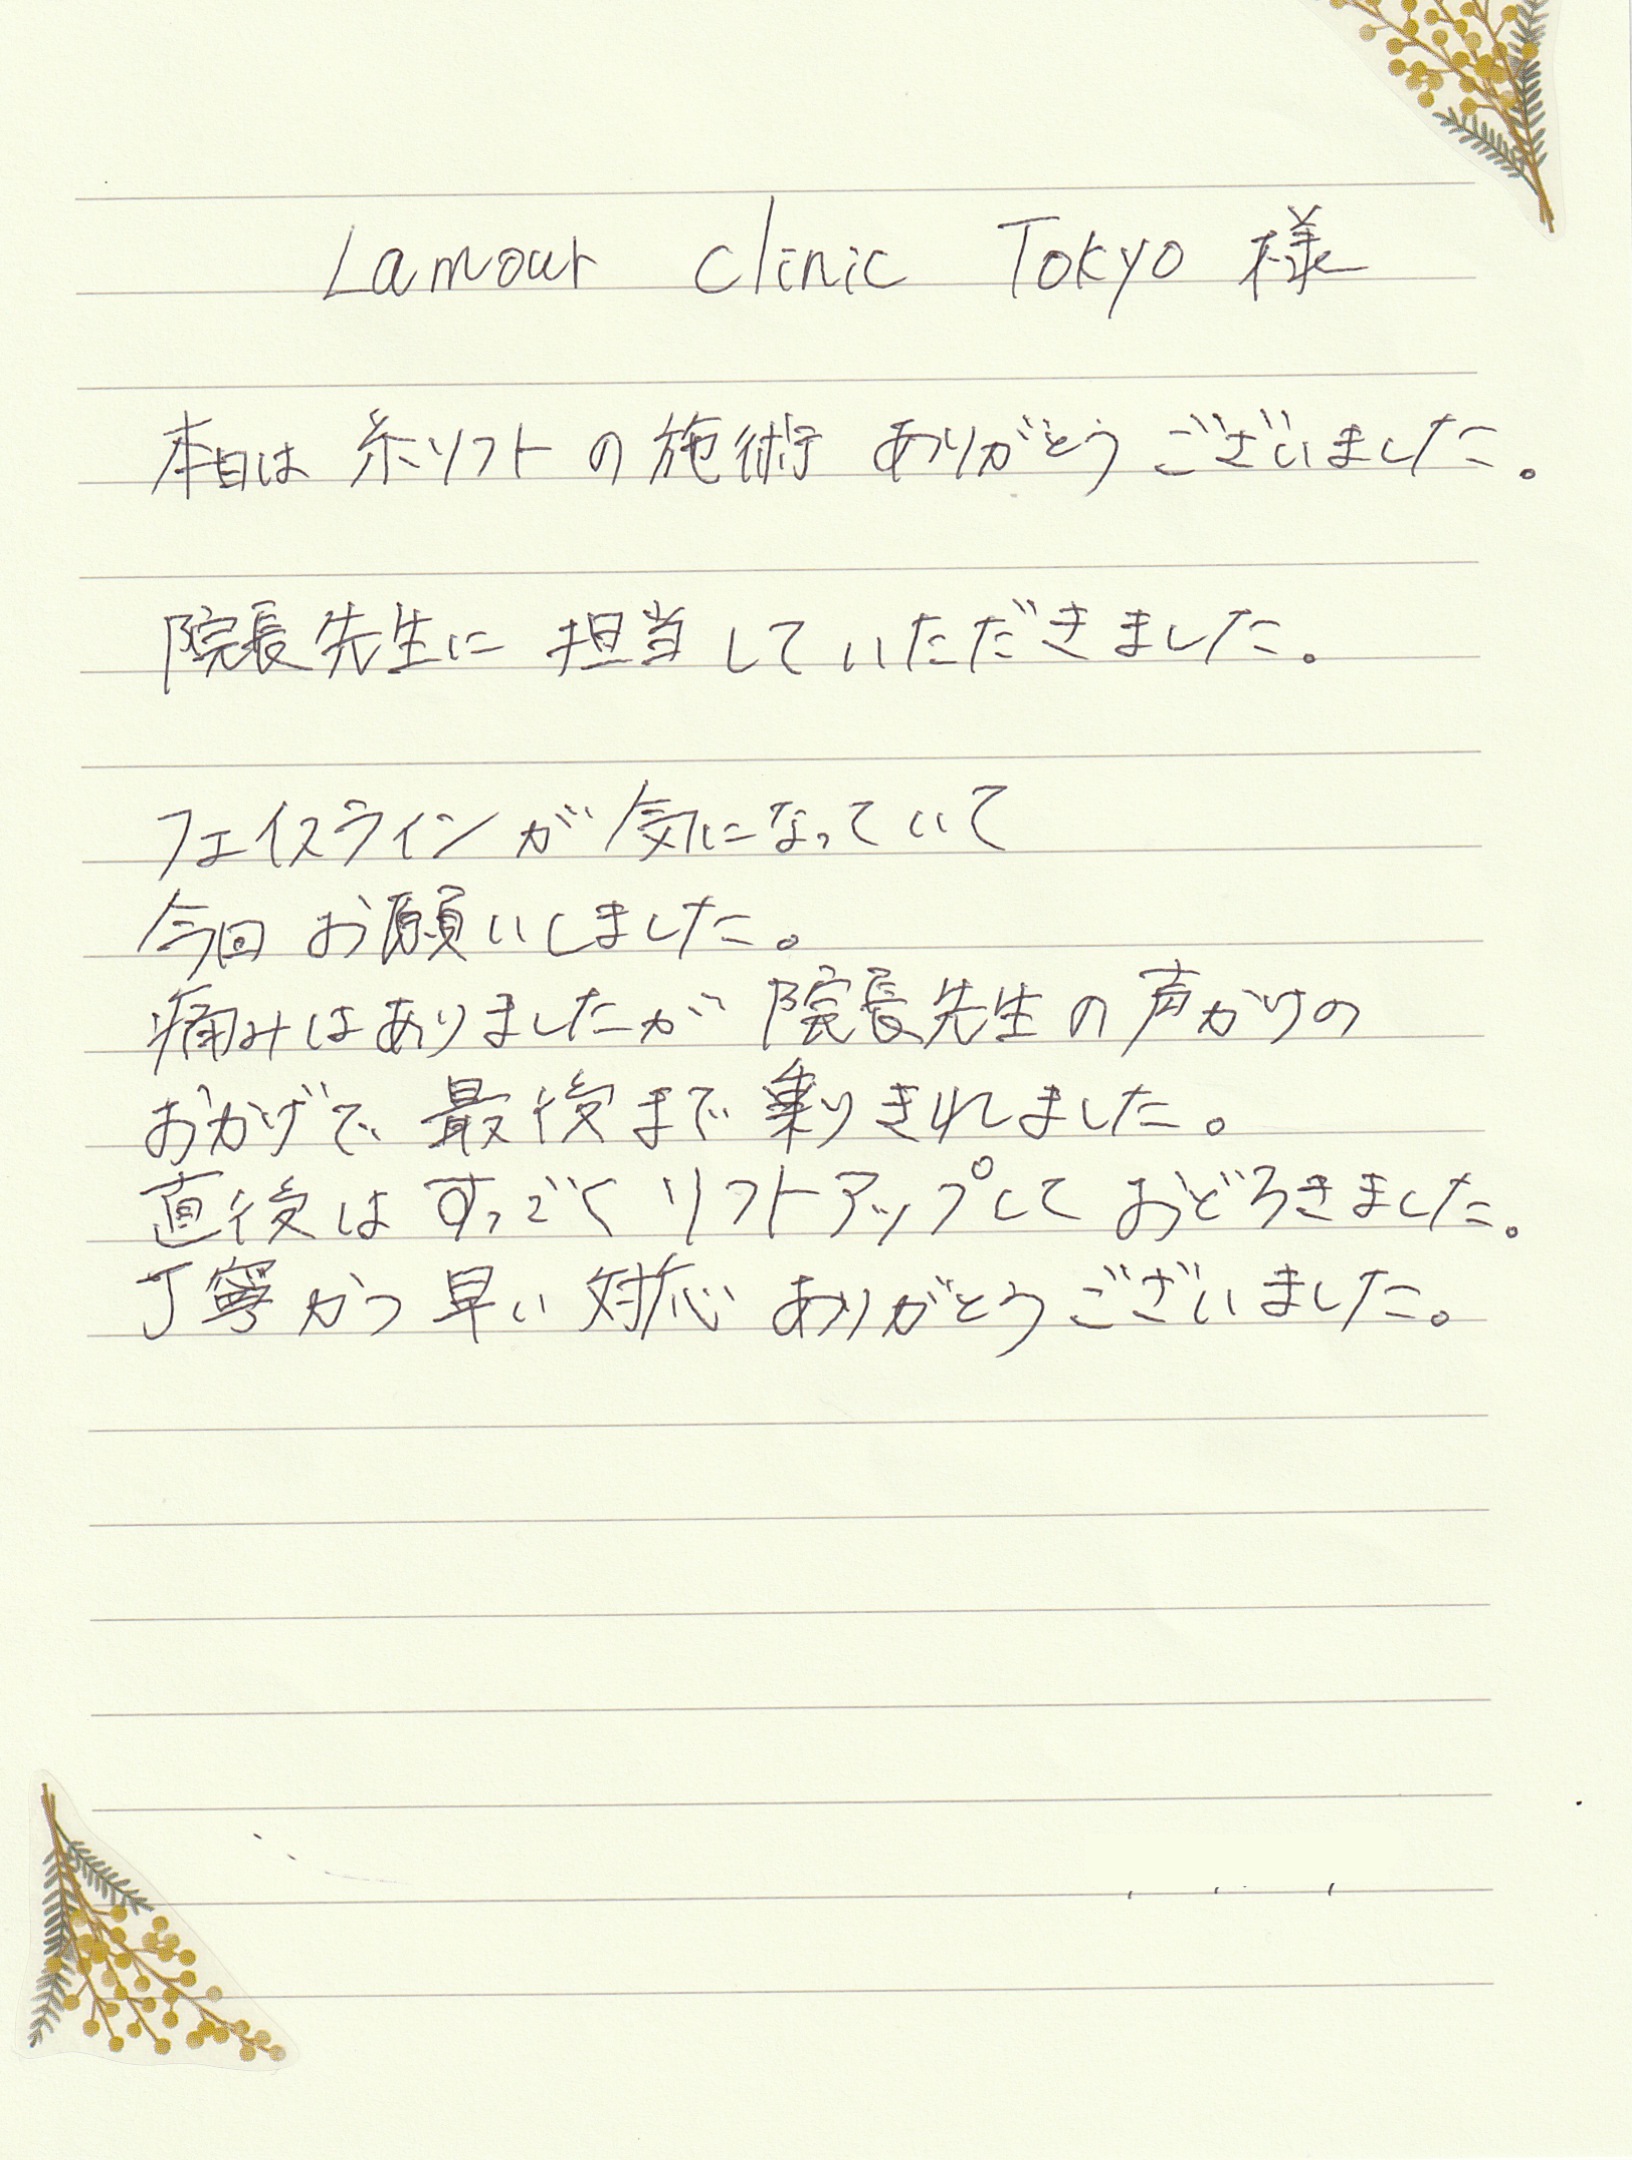 Lamour Clinic Tokyo 様
本日は 糸リフトの施術 ありがとうございました。
院長先生に 担当していただきました。
フェイスラインが気になっていて
今回 お願いしました。
痛みはありましたが 院長先生の声がけの
おかげで 最後まで乗りきれました。
直後は すっごく リフトアップして おどろきました。
丁寧かつ 早い 対応 ありがとうございました。